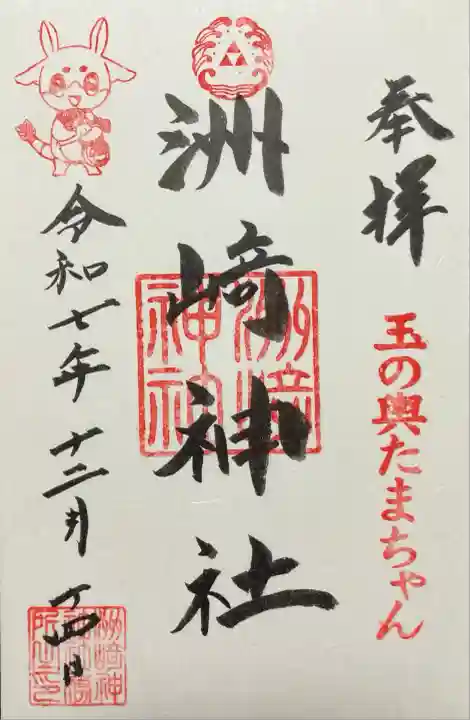 奉拝
玉の輿たまちゃん
洲崎神社
洲崎神社
令和七年十二月十四日